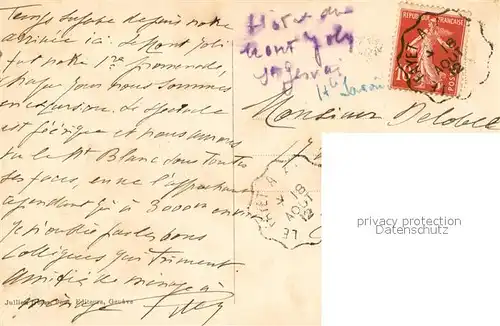 Temps superbe depuis notre
arrivée ici. Le Mont Joli
fut notre 1re promenade,
chaque jour nous sommes
en excursion. Le spectacle
est féérique et nous avons
vu le Mt Blanc sous toutes
ses faces, en ne l'approchant
cependant qu'à 3000m environ
Je n'oublie pas les bons
collègues qui triment
Amitiés de ménage à
ménage
Hotel du
Mont Joly
St Gervais
Hte Savoie
Monsieur Delobel
LE FAYET A
18
AOUT
12
10
POSTES
Editeurs, Genève
privacy protection
AK-Ansichtskarten.de